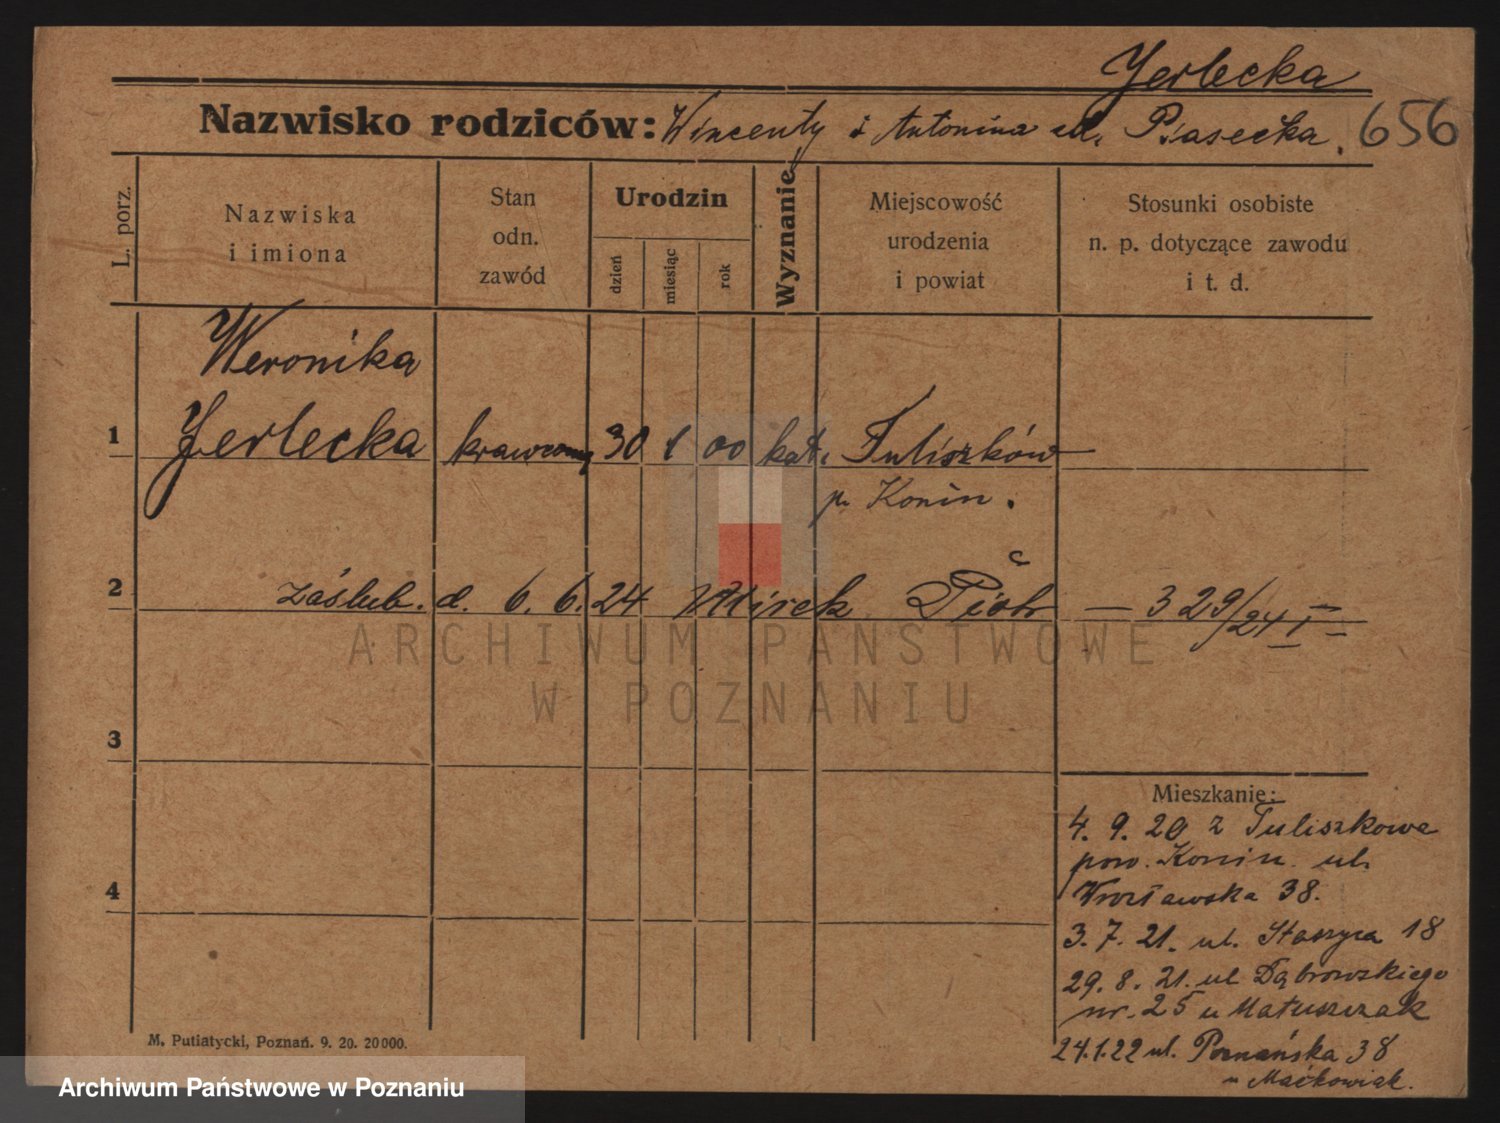 Jerlecka
Nazwisko rodziców: Wincenty i Antonina ul. Piasecka. 656
L. porz.
Nazwiska
i imiona
Stan
odn.
zawód
Urodzin
dzień
miesiąc
rok
Wyznanie
Miejscowość
urodzenia
i powiat
Stosunki osobiste
n. p. dotyczące zawodu
i t. d.
Weronika
1 Jerlecka 30 1 00 kat. Tuliszków
p. Konin.
2 zaślub. d. 6. 6. 24 Piotr — 3 29/24 I —
3
4
Mieszkanie:
4. 9. 20 z Tuliszkowa
pow. Konin ul.
Wrocławska 38.
3. 7. 21. ul. Staszyca 18
29. 8. 21. ul Dąbrowskiego
nr. 25 u Matuszczak
24.1.22 ul. Poznańska 38
u Maćkowiak.
M. Putiatycki, Poznań. 9. 20. 20000.
ARCHIWUM PAŃSTWOWE
W POZNANIU
Archiwum Państwowe w Poznaniu